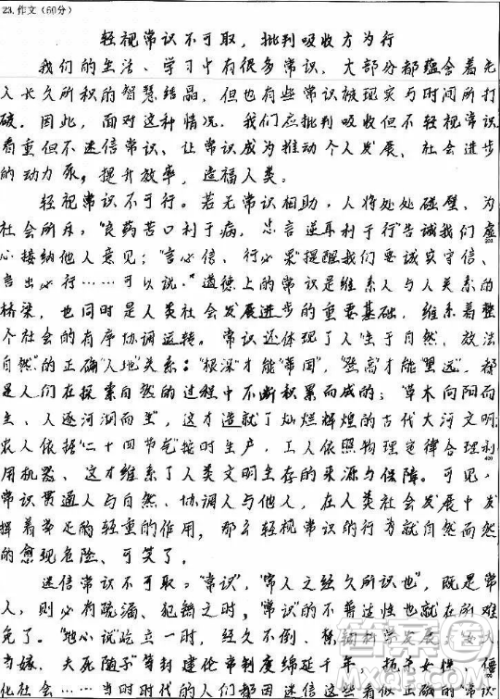 23.作文(60分)
轻视常识不可取，批判吸收方为行
我们的生活、学习中有很多常识，大部分都蕴含着先
人长久所积的智慧结晶，但也有些常识被现实与时间所打
破。因此，面对这种情况，我们应批判吸收但不轻视常识
看重但不迷信常识、让常识成为推动个人发展、社会进步
的动力源，提升效率，造福人类。
轻视常识不可行。若无常识相助，人将处处碰壁、为
社会所弃，"良药苦口利于病，忠言逆耳利于行"告诫我们虚
心接纳他人意见；"言必信，行必果"提醒我们要诚实守信、
言出必行……可以说，道德上的常识是维系人与人关系的
桥梁，也同时是人类社会发展进步的重要基础，维系着整
个社会的有序协调运转。常识还体现了人"生于自然，效法
自然"的正确"人地"关系："根深"才能"常固"，"登高"才能"望远"，都
是人们在探索自然的过程中不断积累而成的；"草木向阳而
生、人逐河洞而生"，这才造就了灿烂辉煌的古代大河文明
农人依据"二十四节气"按时生产，工人依照物理定律合理利
用机器、这才维系了人类文明生存的来源与保障。可见，
常识贯通人与自然、协调人与他人，在人类社会发展中发
挥着举足的轻重的作用，那么轻视常识的行为就自然而然
的愈现危险、可笑了。
迷信常识不可取。"常识"，"常人之经久所识也"，既是常
人，则必有疏漏、犯错之时，"常识"的不普适性也就在所难
免了。"地心说"屹立一时，经久不倒，
当嫁、夫死随子"等封建伦常制度绵延千年，
化社会……当时时代的人们都因迷信这些看似正确的"常识